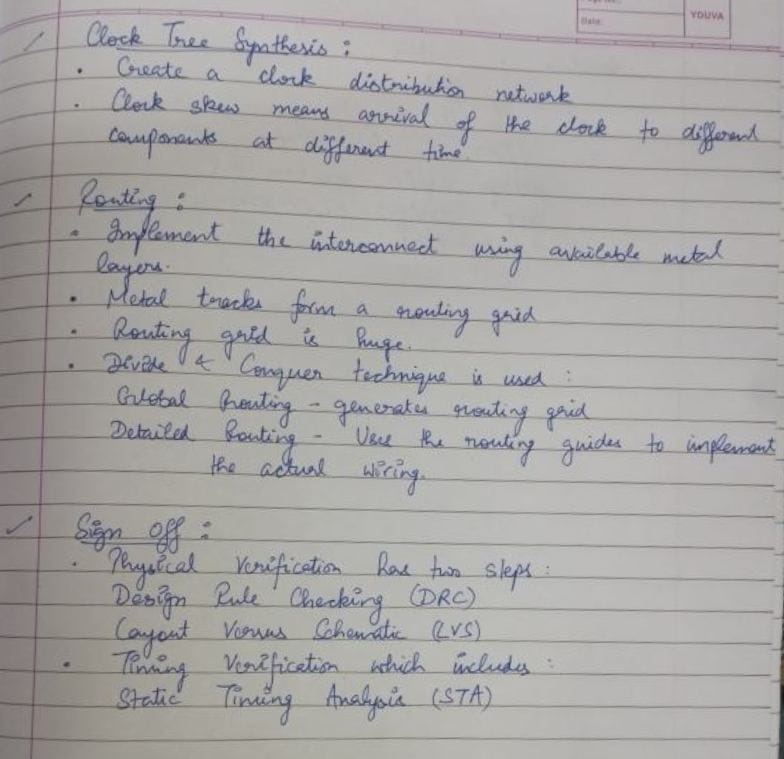 Page No.:
Date:
YOUVA
Clock Tree Synthesis :
• Create a clock distribution network
• Clock skew means arrival of the clock to different
components at different time.
Routing :
• Implement the interconnect using available metal
layers.
• Metal tracks form a routing grid
• Routing grid is huge.
• Divide & Conquer technique is used :
Global Routing - generates routing grid
Detailed Routing - Uses the routing guides to implement
the actual wiring.
Sign off :
• Physical Verification has two steps :
Design Rule Checking (DRC)
Layout Versus Schematic (LVS)
• Timing Verification which includes :
Static Timing Analysis (STA)